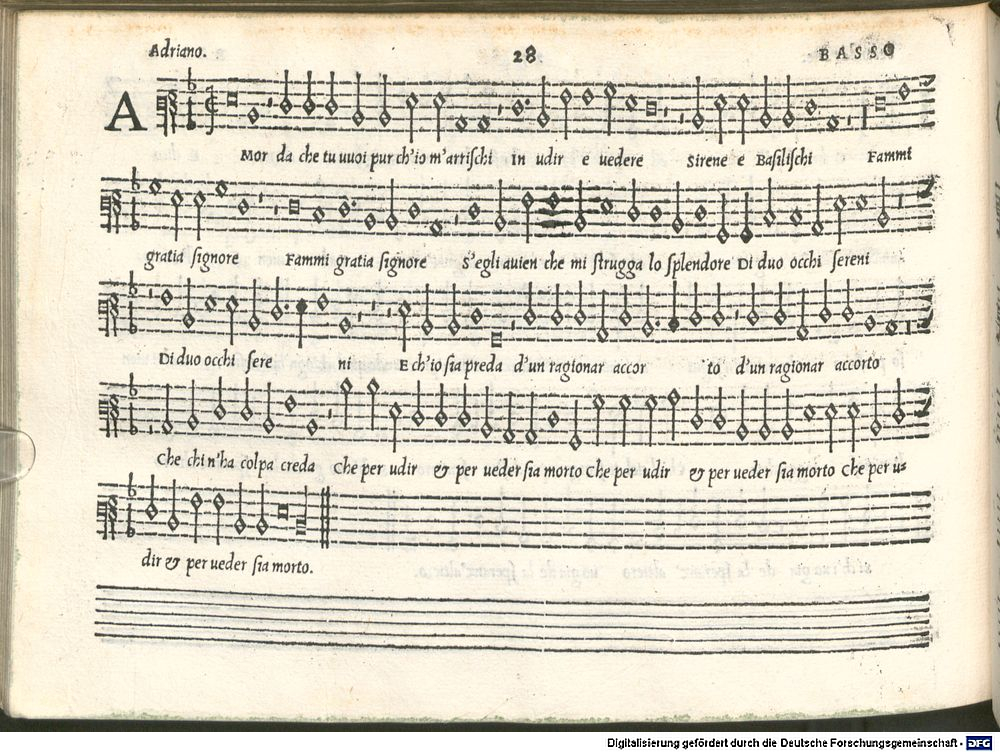 Adriano. 28 BASSO
A
Mor da che tu vuoi pur ch'io m'arrischi In udir e vedere Sirene e Basilischi Fammi
gratia signore Fammi gratia signore S'egli avien che mi strugga lo splendore Di duo occhi sereni
Di duo occhi sere ni E ch'io sia preda d'un ragionar accor to d'un ragionar accorto
Che chi n'ha colpa creda Che per udir & per veder sia morto Che per udir & per veder sia morto Che per u=
dir & per veder sia morto.
Digitalisierung gefördert durch die Deutsche Forschungsgemeinschaft - DFG